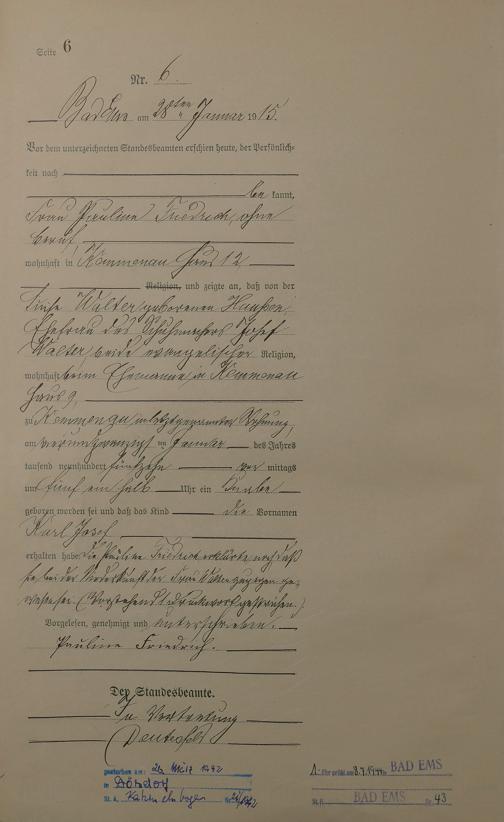 Seite 6
Nr. 6
Bad Ems am 28ten Januar 1915.
Vor dem unterzeichneten Standesbeamten erschien heute, der Persönlich-
keit nach
be kannt,
Frau Pauline Friedrich, ohne
Beruf,
wohnhaft in Kemmenau Haus 12
Religion, und zeigte an, daß von der
Walter geborenen
Ehefrau des Schuhmachers Josef
Walter, beide evangelischer Religion,
wohnhaft beim Ehemanne in Kemmenau
Haus 9,
zu Kemmenau in letztgenannter Wohnung,
am vierundzwanzigsten Januar des Jahres
tausend neunhundert fünfzehn vor mittags
um fünf ein halb Uhr ein Knabe
geboren worden sei und daß das Kind die Vornamen
Karl Josef
erhalten habe. Die Pauline Friedrich erklärte noch, daß
sie bei der Niederkunft der Frau Walter zugegen ge-
wesen sei. (Vorstehend 1 Druckwort gestrichen.)
Vorgelesen, genehmigt und unterschrieben.
Pauline Friedrich.
Der Standesbeamte.
In Vertretung
gestorben am: 1992
in Dörsdorf
St. A. Katzenelnbogen Nr.
1. Eheschl. am 3.7. in BAD EMS
St. A. BAD EMS Nr. 43